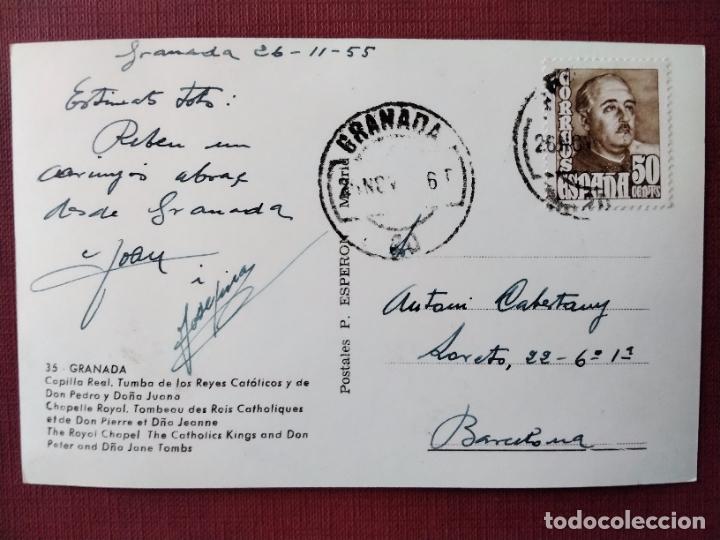 Granada 26-11-55
Estimats tots:
Reben un
carinyós abraç
desde Granada
Joan
i
Josefina
35 - GRANADA
Capilla Real. Tumba de los Reyes Católicos y de
Don Pedro y Doña Juana
Chapelle Royal. Tombeau des Rois Catholiques
et de Don Pierre et Dña Jeanne
The Royal Chapel The Catholics Kings and Don
Peter and Dña Jane Tombs
Postales P. ESPERON Madrid
GRANADA
NOV 6T
26 NOV
CORREOS
50
CENTS
ESPAÑA
Antoni Cabestany
Loreto, 22-6º 1ª
Barcelona
todocoleccion
todocoleccion.net